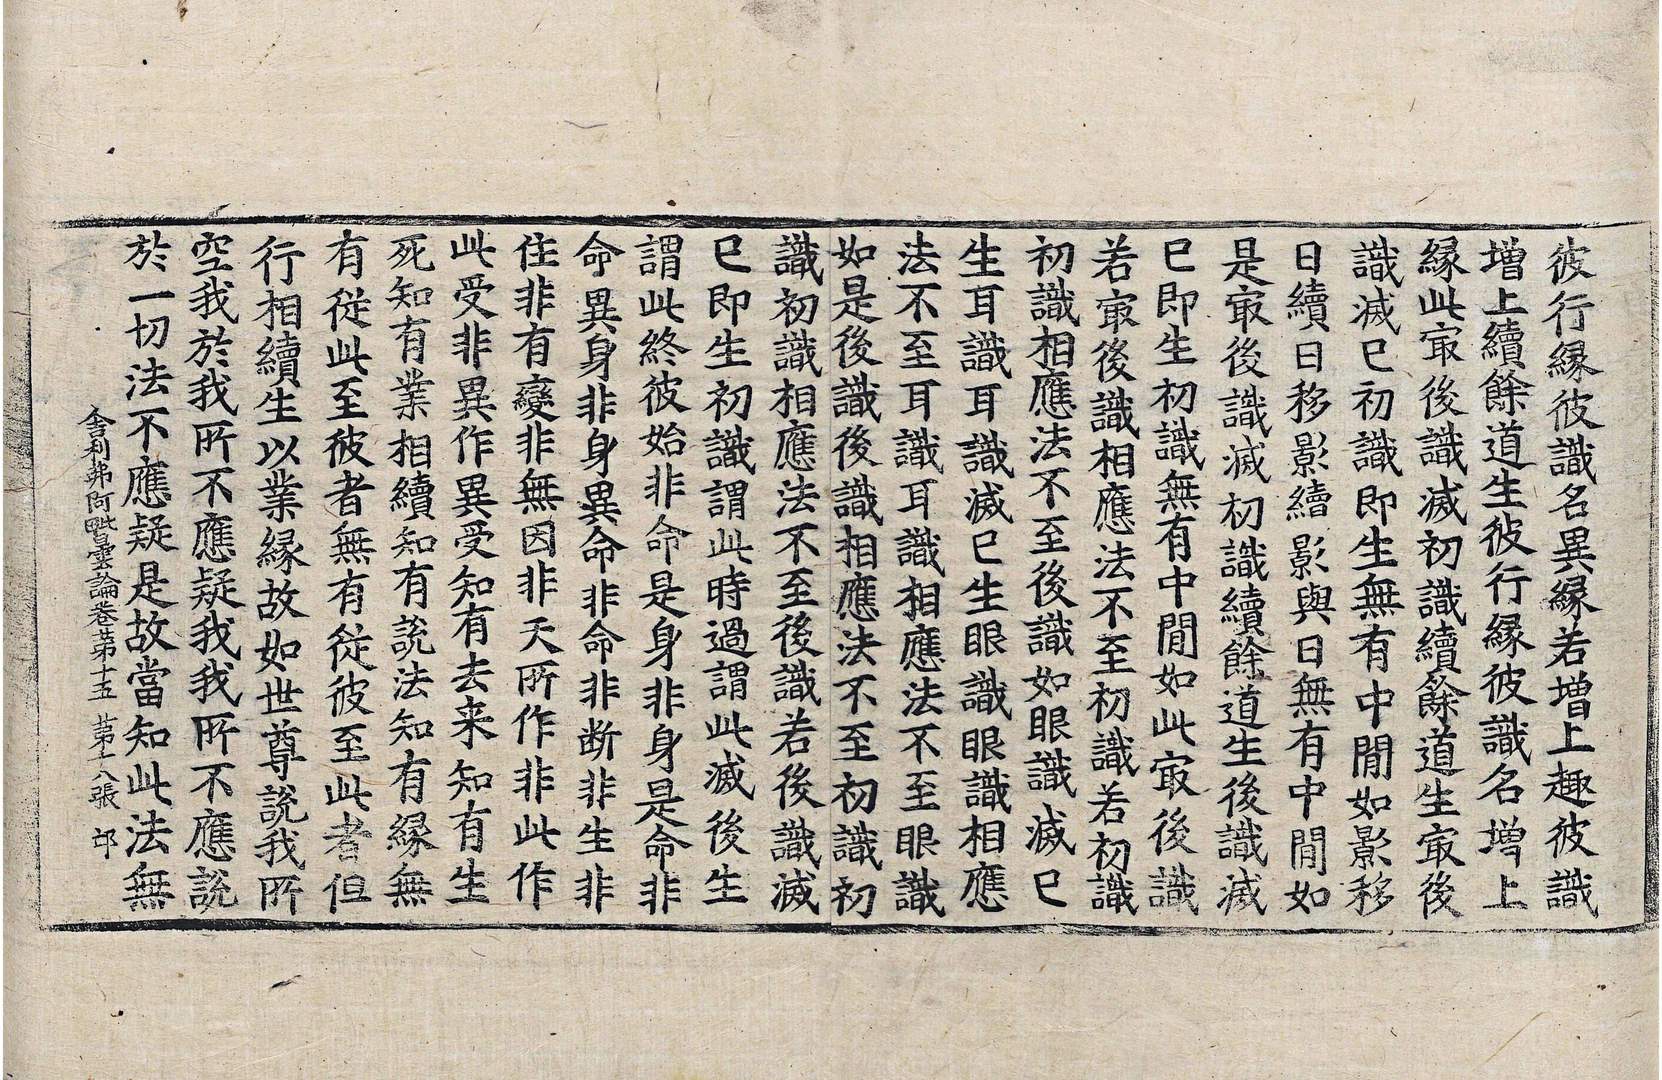 彼行縁彼識名異縁若増上趣彼識
増上續餘道生彼行縁彼識名増上
縁此㝡後識滅初識續餘道生㝡後
識滅已初識即生無有中閒如影移
日續日移影續影與日無有中閒如
是㝡後識滅初識續餘道生後識滅
已即生初識無有中閒如此㝡後識
若㝡後識相應法不至初識若初識
初識相應法不至後識如眼識滅已
生耳識耳識滅已生眼識眼識相應
法不至耳識耳識相應法不至眼識
如是後識後識相應法不至初識初
識初識相應法不至後識若後識滅
已即生初識謂此時過謂此滅後生
謂此終彼始非命是身非身是命非
命異身非身異命非命非断非生非
住非有變非無因非天所作非此作
此受非異作異受知有去来知有生
死知有業相續知有説法知有縁無
有從此至彼者無有從彼至此者但
行相續生以業縁故如世尊説我所
空我於我所不應疑我我所不應説
於一切法不應疑是故當知此法無
舎利弗阿毗曇論卷苐十五 苐十八張 邙